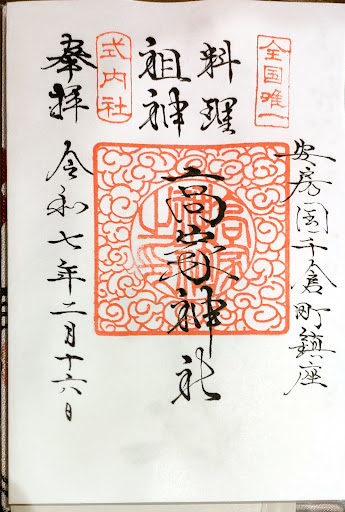 安房国千倉町鎮座
全国唯一
料理
祖神
高家神社
式内社
奉拝
令和七年二月十六日